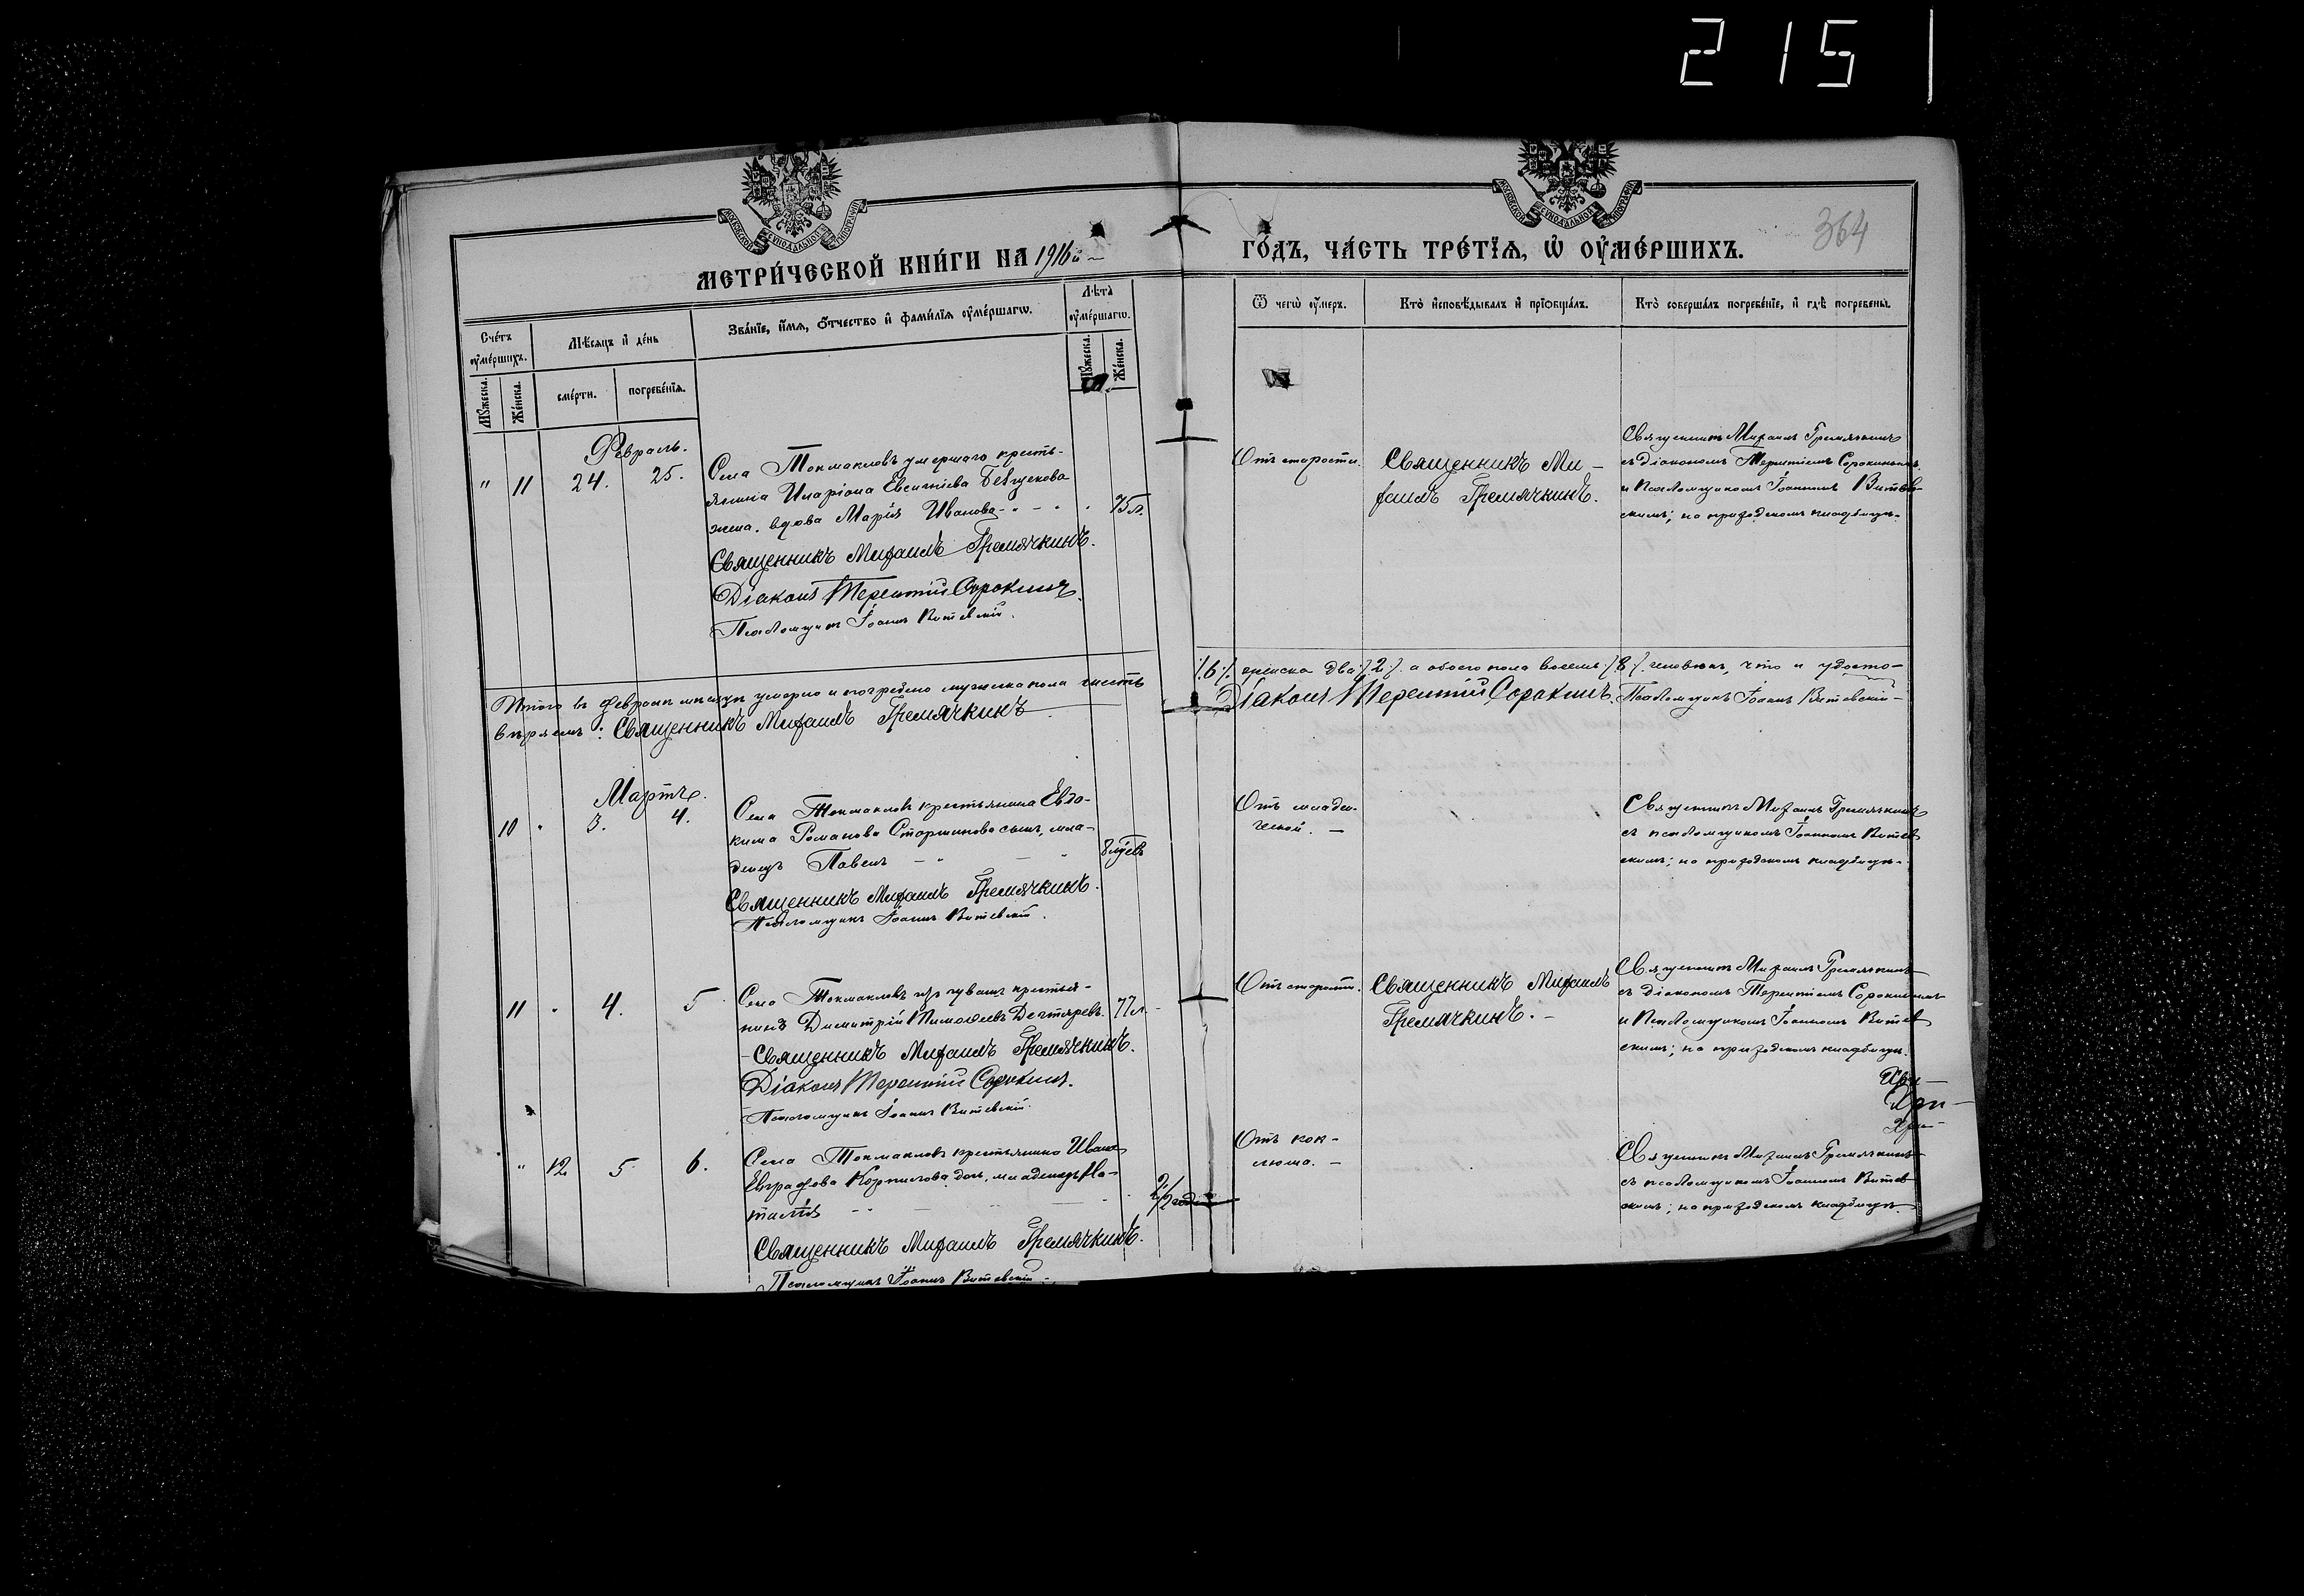 2151
364
МЕТРИ́ЧЕСКОЙ КНИ́ГИ НА 1916й
ГО́ДЪ, ЧА́СТЬ ТРЕ́ТЇѦ, Ѡ҆ ОУ҆МЕ́РШИХЪ.
Сче́тъ оу҆ме́ршихъ.
Мѣ́сѧцъ и҆ де́нь
Зва́нїе, и҆́мѧ, ѻ҆́тчество и҆ фамилїѧ оу҆ме́ршагѡ.
Лѣ́та оу҆ме́ршагѡ.
Мꙋ́жеска.
Же́нска.
сме́рти.
погребе́нїѧ.
Мꙋ́жеска.
Же́нска.
Ѿ чегѡ̀ оу҆́меръ.
Кто̀ и҆сповѣ́дывалъ и҆ прїѡбща́лъ.
Кто̀ соверша́лъ погребе́нїе, и҆ гдѣ̀ погребены̀.
Февраль.
" 11 24. 25.
Села Токмаклов умершаго кресть-
янина Илариона
жена. вдова Марія Иванова
75 л.
Священникъ Михаилъ Гремячкинъ.
Діаконъ Терентій Сорокинъ.
Псаломщикъ Іоаннъ Витевскій.
Отъ старости.
Священникъ Ми-
хаилъ Гремячкинъ.
Священникъ Михаилъ Гремячкинъ
съ діакономъ Терентіемъ Сорокинымъ
и Псаломщикомъ Іоанномъ Витев-
скимъ; на приходскомъ кладбищѣ.
Итого въ февралѣ мѣсяцѣ умерло и погребено мужеска пола шесть
/.6./. женска два /.2./. а обоего пола восемь /.8./. человѣкъ, что и удосто-
вѣряемъ: Священникъ Михаилъ Гремячкинъ.
Діаконъ Терентій Сорокинъ. Псаломщикъ Іоаннъ Витевскій
Мартъ.
10 " 3. 4.
Села Токмаклов крестьянина Евдо-
кима Романова Старшинова сынъ, мла-
денецъ Павелъ
Священникъ Михаилъ Гремячкинъ.
Псаломщикъ Іоаннъ Витевскій.
Отъ младен-
ческой.
Священникъ Михаилъ Гремячкинъ
съ псаломщикомъ Іоанномъ Витев
скимъ; на приходскомъ кладбищѣ.
11 " 4. 5
Села Токмаклов изъ чувашъ крестья-
нинъ Димитрій Тимофеевъ Дегтяревъ.
77 л.
Священникъ Михаилъ Гремячкинъ.
Діаконъ Терентій Сорокинъ.
Псаломщикъ Іоаннъ Витевскій.
Отъ старости.
Священникъ Михаилъ
Гремячкинъ.
Священникъ Михаилъ Гремячкинъ
съ діакономъ Терентіемъ Сорокинымъ
и Псаломщикомъ Іоанномъ Витев
скимъ; на приходскомъ кладбищѣ.
" 12 5. 6.
Села Токмаклов крестьянина Ивана
Евграфова Корнилова дочь, младенецъ На-
талія
2½ года
Священникъ Михаилъ Гремячкинъ.
Псаломщикъ Іоаннъ Витевскій.
Отъ кок-
люша.
Священникъ Михаилъ Гремячкинъ
съ псаломщикомъ Іоанномъ Витев
скимъ; на приходскомъ кладбищѣ.